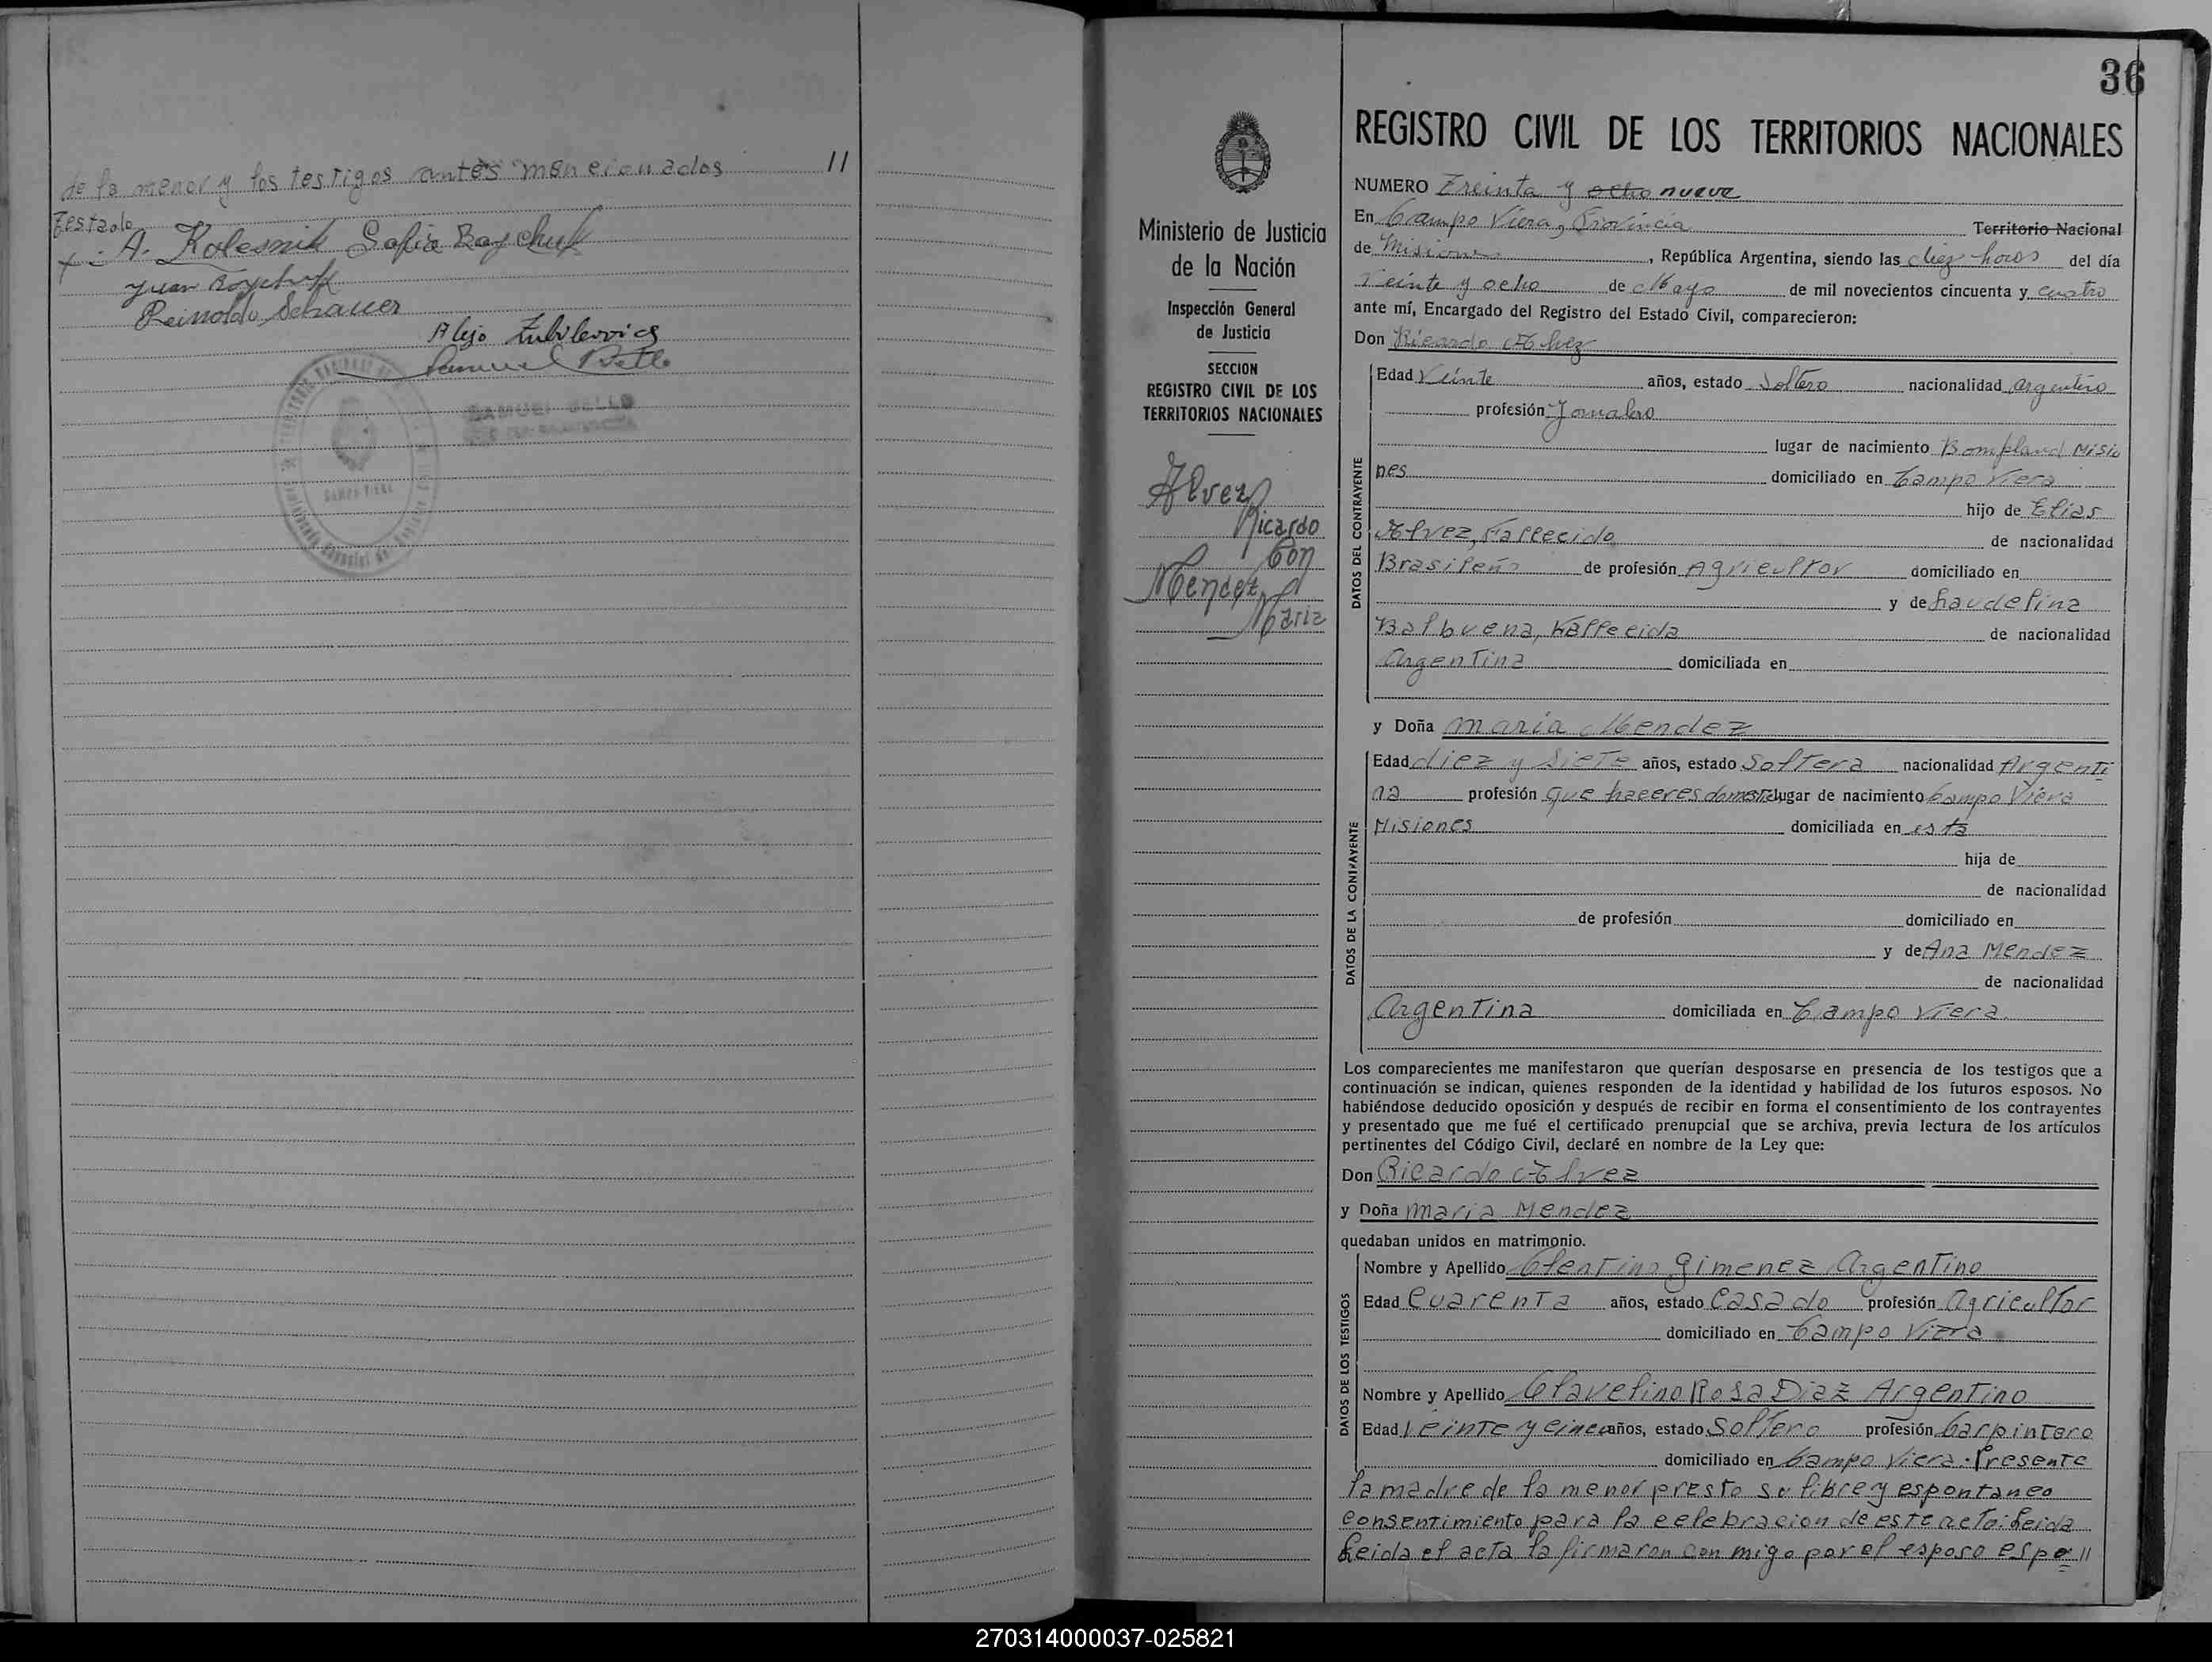 de la menor y los testigos antes mencionados //
Testado
A. Kolesnik Sofia Boychuk
Juan Boychuk
Reinoldo Schauer
Alejo Zubilevics
Samuel Bello
SAMUEL BELLO
CAMPO VIERA
36
REGISTRO CIVIL DE LOS TERRITORIOS NACIONALES
Ministerio de Justicia
de la Nación
Inspección General
de Justicia
SECCION
REGISTRO CIVIL DE LOS
TERRITORIOS NACIONALES
Alvez
Ricardo
Con
Mendez
Maria
NUMERO Treinta y ocho nueve
En Campo Viera, Provincia Territorio Nacional
de Misiones, República Argentina, siendo las diez horas del día
veinte y ocho de Mayo de mil novecientos cincuenta y cuatro
ante mí, Encargado del Registro del Estado Civil, comparecieron:
Don Ricardo Alvez
DATOS DEL CONTRAYENTE
Edad Veinte años, estado Soltero nacionalidad argentino
profesión Jornalero
lugar de nacimiento Bompland Misio
nes domiciliado en Campo Viera
hijo de Elias
Alvez, Fallecido de nacionalidad
Brasileño de profesión Agricultor domiciliado en
y de Laudelina
Balbuena, Fallecida de nacionalidad
Argentina domiciliada en
y Doña Maria Mendez
DATOS DE LA CONTRAYENTE
Edad diez y siete años, estado Soltera nacionalidad Argenti
na profesión que haceres domest lugar de nacimiento Campo Viera
Misiones domiciliada en esta
hija de
de nacionalidad
de profesión domiciliado en
y de Ana Mendez
de nacionalidad
Argentina domiciliada en Campo Viera.
Los comparecientes me manifestaron que querían desposarse en presencia de los testigos que a
continuación se indican, quienes responden de la identidad y habilidad de los futuros esposos. No
habiéndose deducido oposición y después de recibir en forma el consentimiento de los contrayentes
y presentado que me fué el certificado prenupcial que se archiva, previa lectura de los artículos
pertinentes del Código Civil, declaré en nombre de la Ley que:
Don Ricardo Alvez
y Doña Maria Mendez
quedaban unidos en matrimonio.
DATOS DE LOS TESTIGOS
Nombre y Apellido Clentino Gimenez Argentino
Edad Cuarenta años, estado Casado profesión Agricultor
domiciliado en Campo Viera
Nombre y Apellido Clavelino Rosa Diaz Argentino
Edad Veinte y cinco años, estado Soltero profesión Carpintero
domiciliado en Campo Viera. Presente
la madre de la menor presto su libre y espontaneo
consentimiento para la celebracion de este acto. Leida
Leida el acta la firmaron con migo por el esposo espo //
270314000037-025821